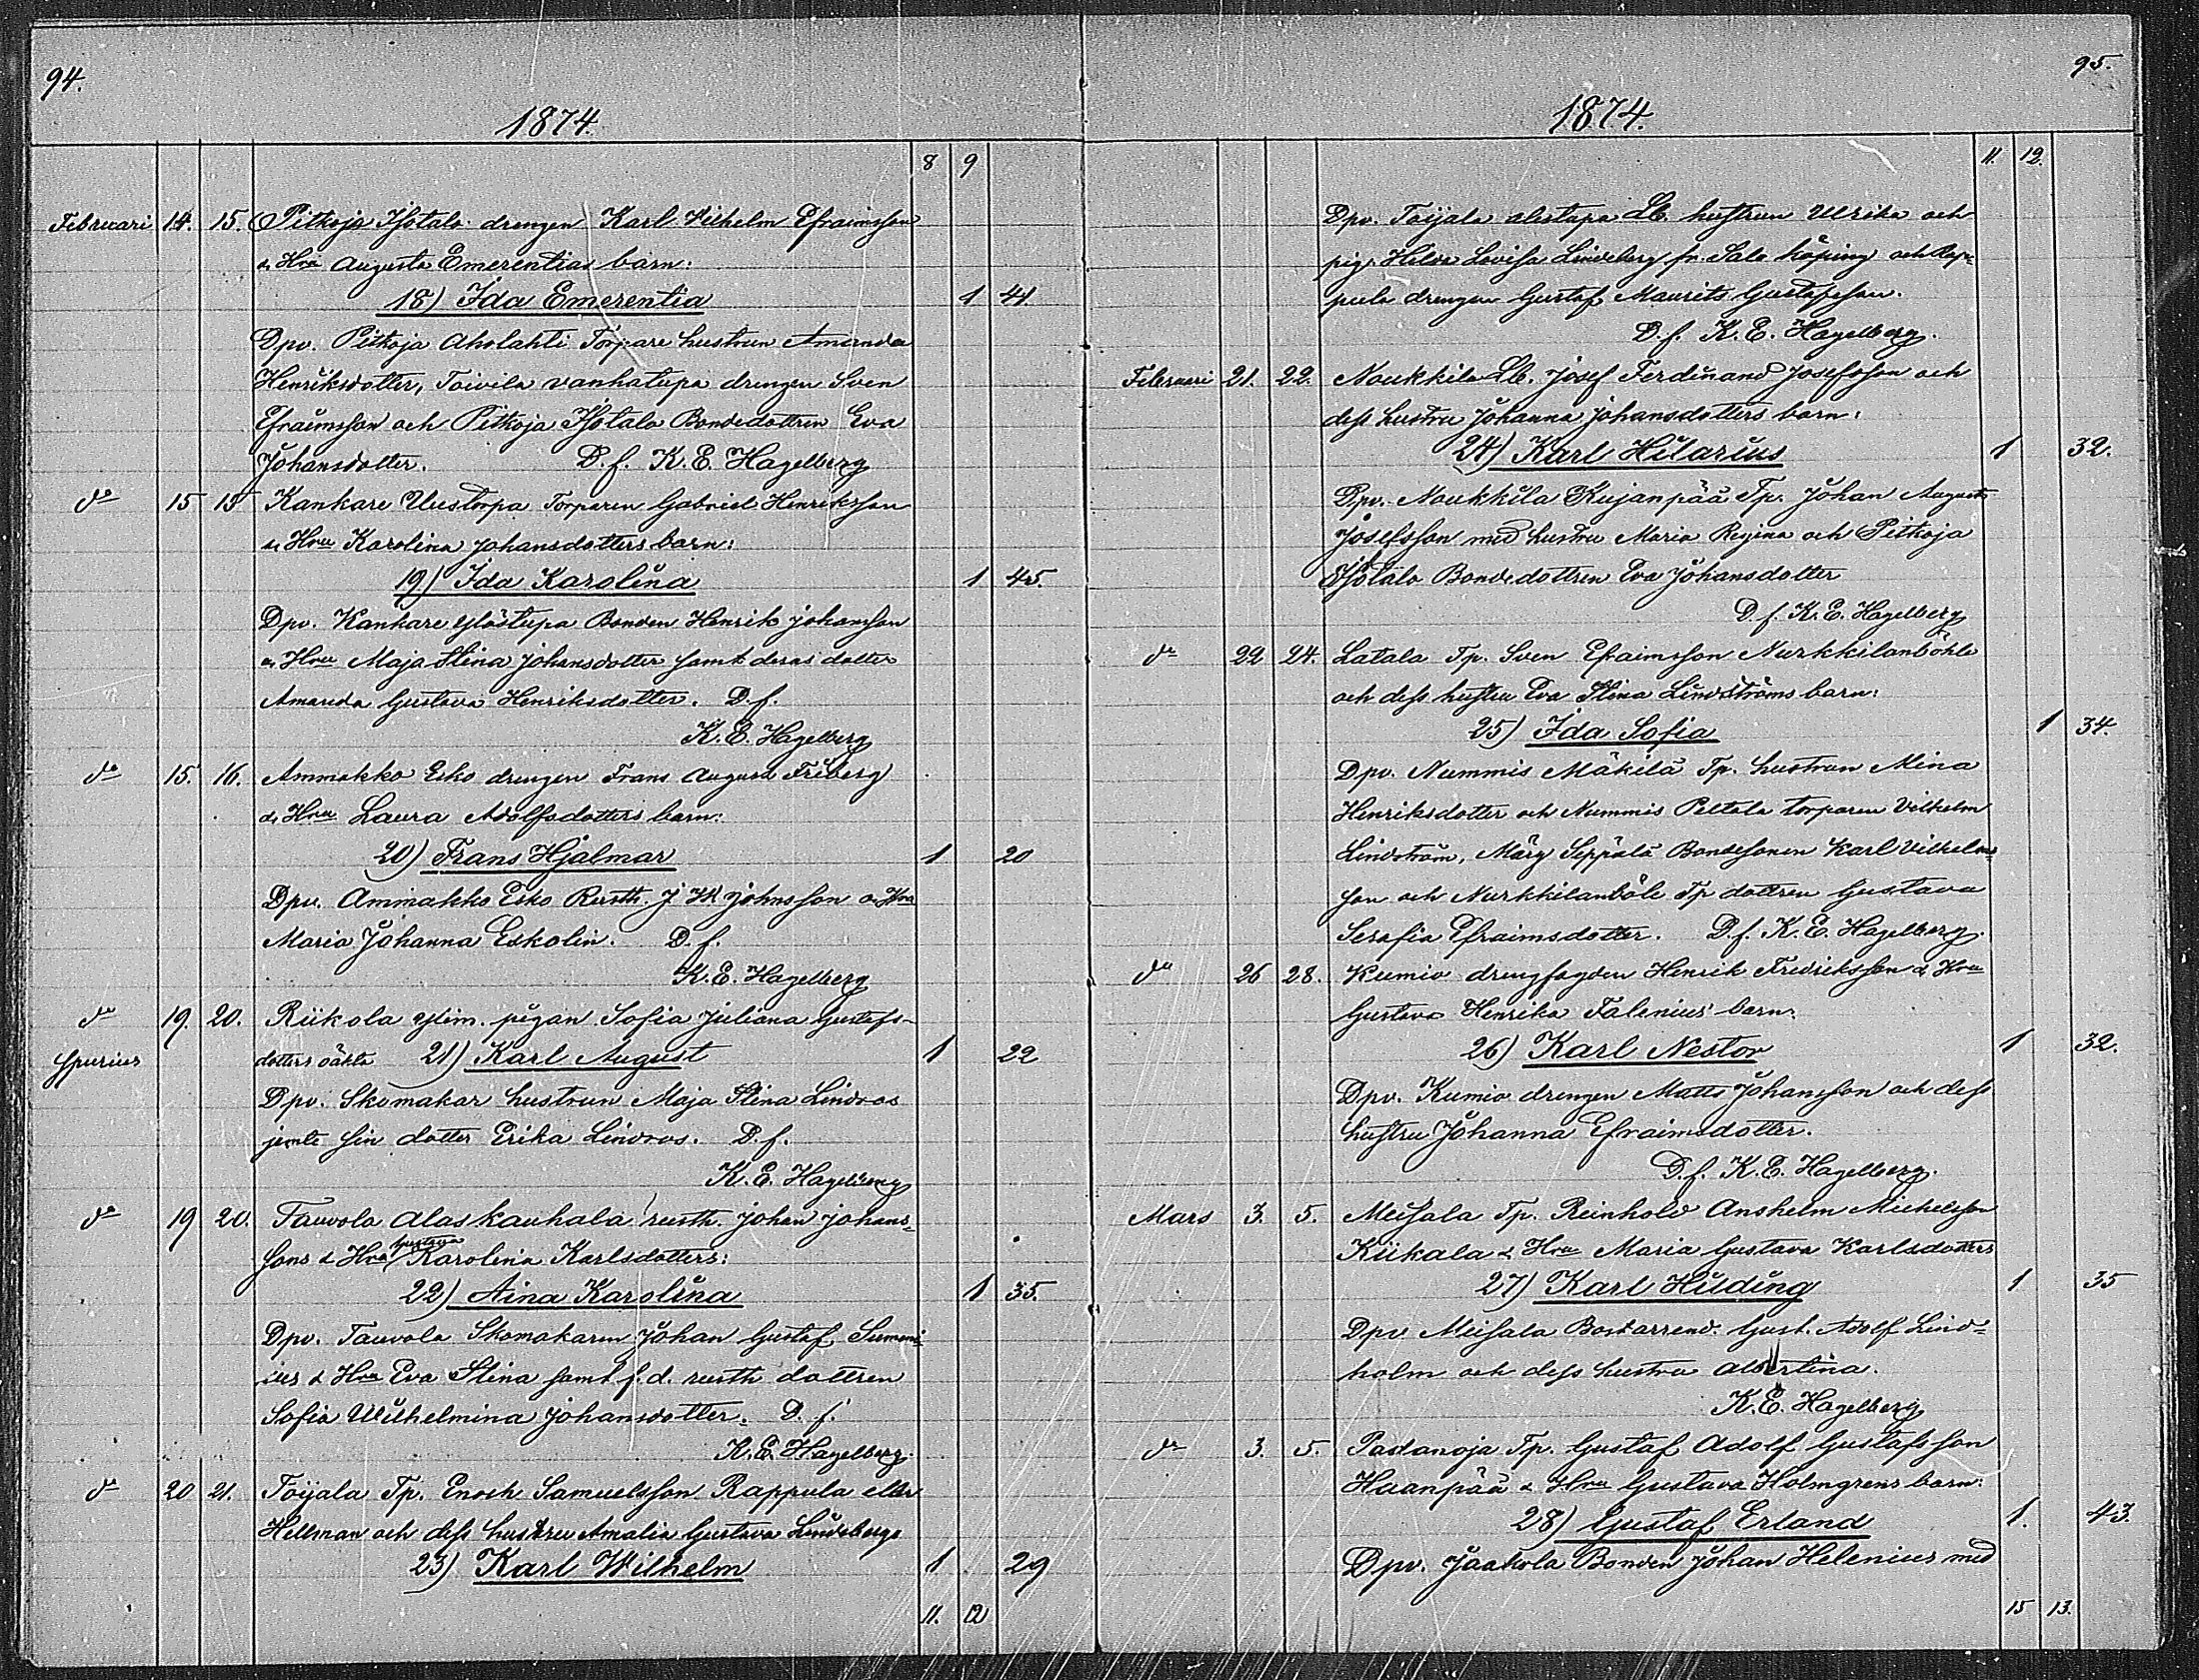 94.
1874.
8 9
Februari 14. 15. Pitkoja Isotalo drengen Karl Wilhelm Efraimsson
& Hru Augusta Emerentias barn:
18) Ida Emerentia 1 41.
Dpv. Pitkoja Aholahti Torpare hustrun Amanda
Henriksdotter, Toivila vanhatupa drengen Sven
Efraimsson och Pitkoja Isotalo Bondedottren Eva
Johansdotter. D. f. K. E. Hagelberg
do 15 15 Kankare Uustorpa Torparen Gabriel Henriksson
& Hru Karolina Johansdotters barn:
19) Ida Karolina 1 45.
Dpv. Kankare Ylöstupa Bonden Henrik Johansson
& Hru Maja Stina Johansdotter samt deras dotter
Amanda Gustava Henriksdotter. D. f.
K. E. Hagelberg
do 15. 16. Ammakko Esko drengen Frans August Friberg
& Hru Laura Adolfsdotters barn:
20) Frans Hjalmar 1 20
Dpv. Ammakko Esko Rusth. J W Johnsson & Hru
Maria Johanna Eskolin. D. f.
K. E. Hagelberg
do 19. 20. Riikola Ylim. pigan Sofia Juliana Gustafs-
Spurius dotters oäkta 21) Karl August 1 22
Dpv. Skomakar hustrun Maja Stina Lindros
jemte sin dotter Erika Lindros. D. f.
K. E. Hagelberg
do 19 20. Tauvola Alaskauhala rusth. Johan Johans-
sons & Hru Gustava Karolina Karlsdotters:
22) Aina Karolina 1 35.
Dpv. Tauvola Skomakaren Johan Gustaf
& Hru Eva Stina samt f. d. rusth dottren
Sofia Wilhelmina Johansdotter. D. f.
K. E. Hagelberg.
do 20 21. Toijala Tp. Enoch Samuelsson Rappula eller
Hellman och dess hustru Amalia Gustava Lindebergs
23) Karl Wilhelm 1 29
11. 12
95.
1874.
11. 12.
Dpv. Toijala alestapa Lb. hustrun Ulrika och
pig. Hilda Lovisa Lindeberg fr. Salo köping och Rap-
pula drengen Gustaf Maurits Gustafsson.
D. f. K. E. Hagelberg.
Februari 21. 22. Noukkila Lb. Josef Ferdinand Josefsson och
dess hustru Johanna Johansdotters barn:
24) Karl Hilarius 1 32.
Dpv. Noukkila Kujanpää Tp. Johan August
Josefsson med hustru Maria Regina och Pitkoja
Isotalo Bondedottren Eva Johansdotter
D. f. K. E. Hagelberg
do 22 24. Latala Tp. Sven Efraimsson Nurkkilanböhle
och dess hustru Eva Stina Lindströms barn:
25) Ida Sofia 1 34.
Dpv. Nummis Mäkilä Tp. hustrun Mina
Henriksdotter och Nummis Peltola torparen Vilhelm
Lindström, Märy Seppälä Bondesonen Karl Vilhelms-
son och Nurkkilanböle Tp dottren Gustava
Serafia Efraimsdotter. D. f. K. E. Hagelberg.
do 26 28. Kumio drengfogden Henrik Fredriksson & Hru
Gustava Henrika Falenius' barn:
26) Karl Nestor 1 32.
Dpv. Kumio drengen Matts Johansson och dess
hustru Johanna Efraimsdotter.
D. f. K. E. Hagelberg.
Mars 3. 5. Meisala Tp. Reinhold Anshelm Michelsson
Kiikala & Hru Maria Gustava Karlsdotters
27) Karl Huding 1 35
Dpv Meisala Bost.arrend. Gust. Adolf Lind-
holm och dess hustru Albertina.
K. E. Hagelberg
do 3. 5. Padanoja Tp. Gustaf Adolf Gustafsson
Haanpää & Hru Gustava Holmgrens barn:
28) Gustaf Erland 1. 43.
Dpv. Jaakola Bonden Johan Helenius med
15 13.